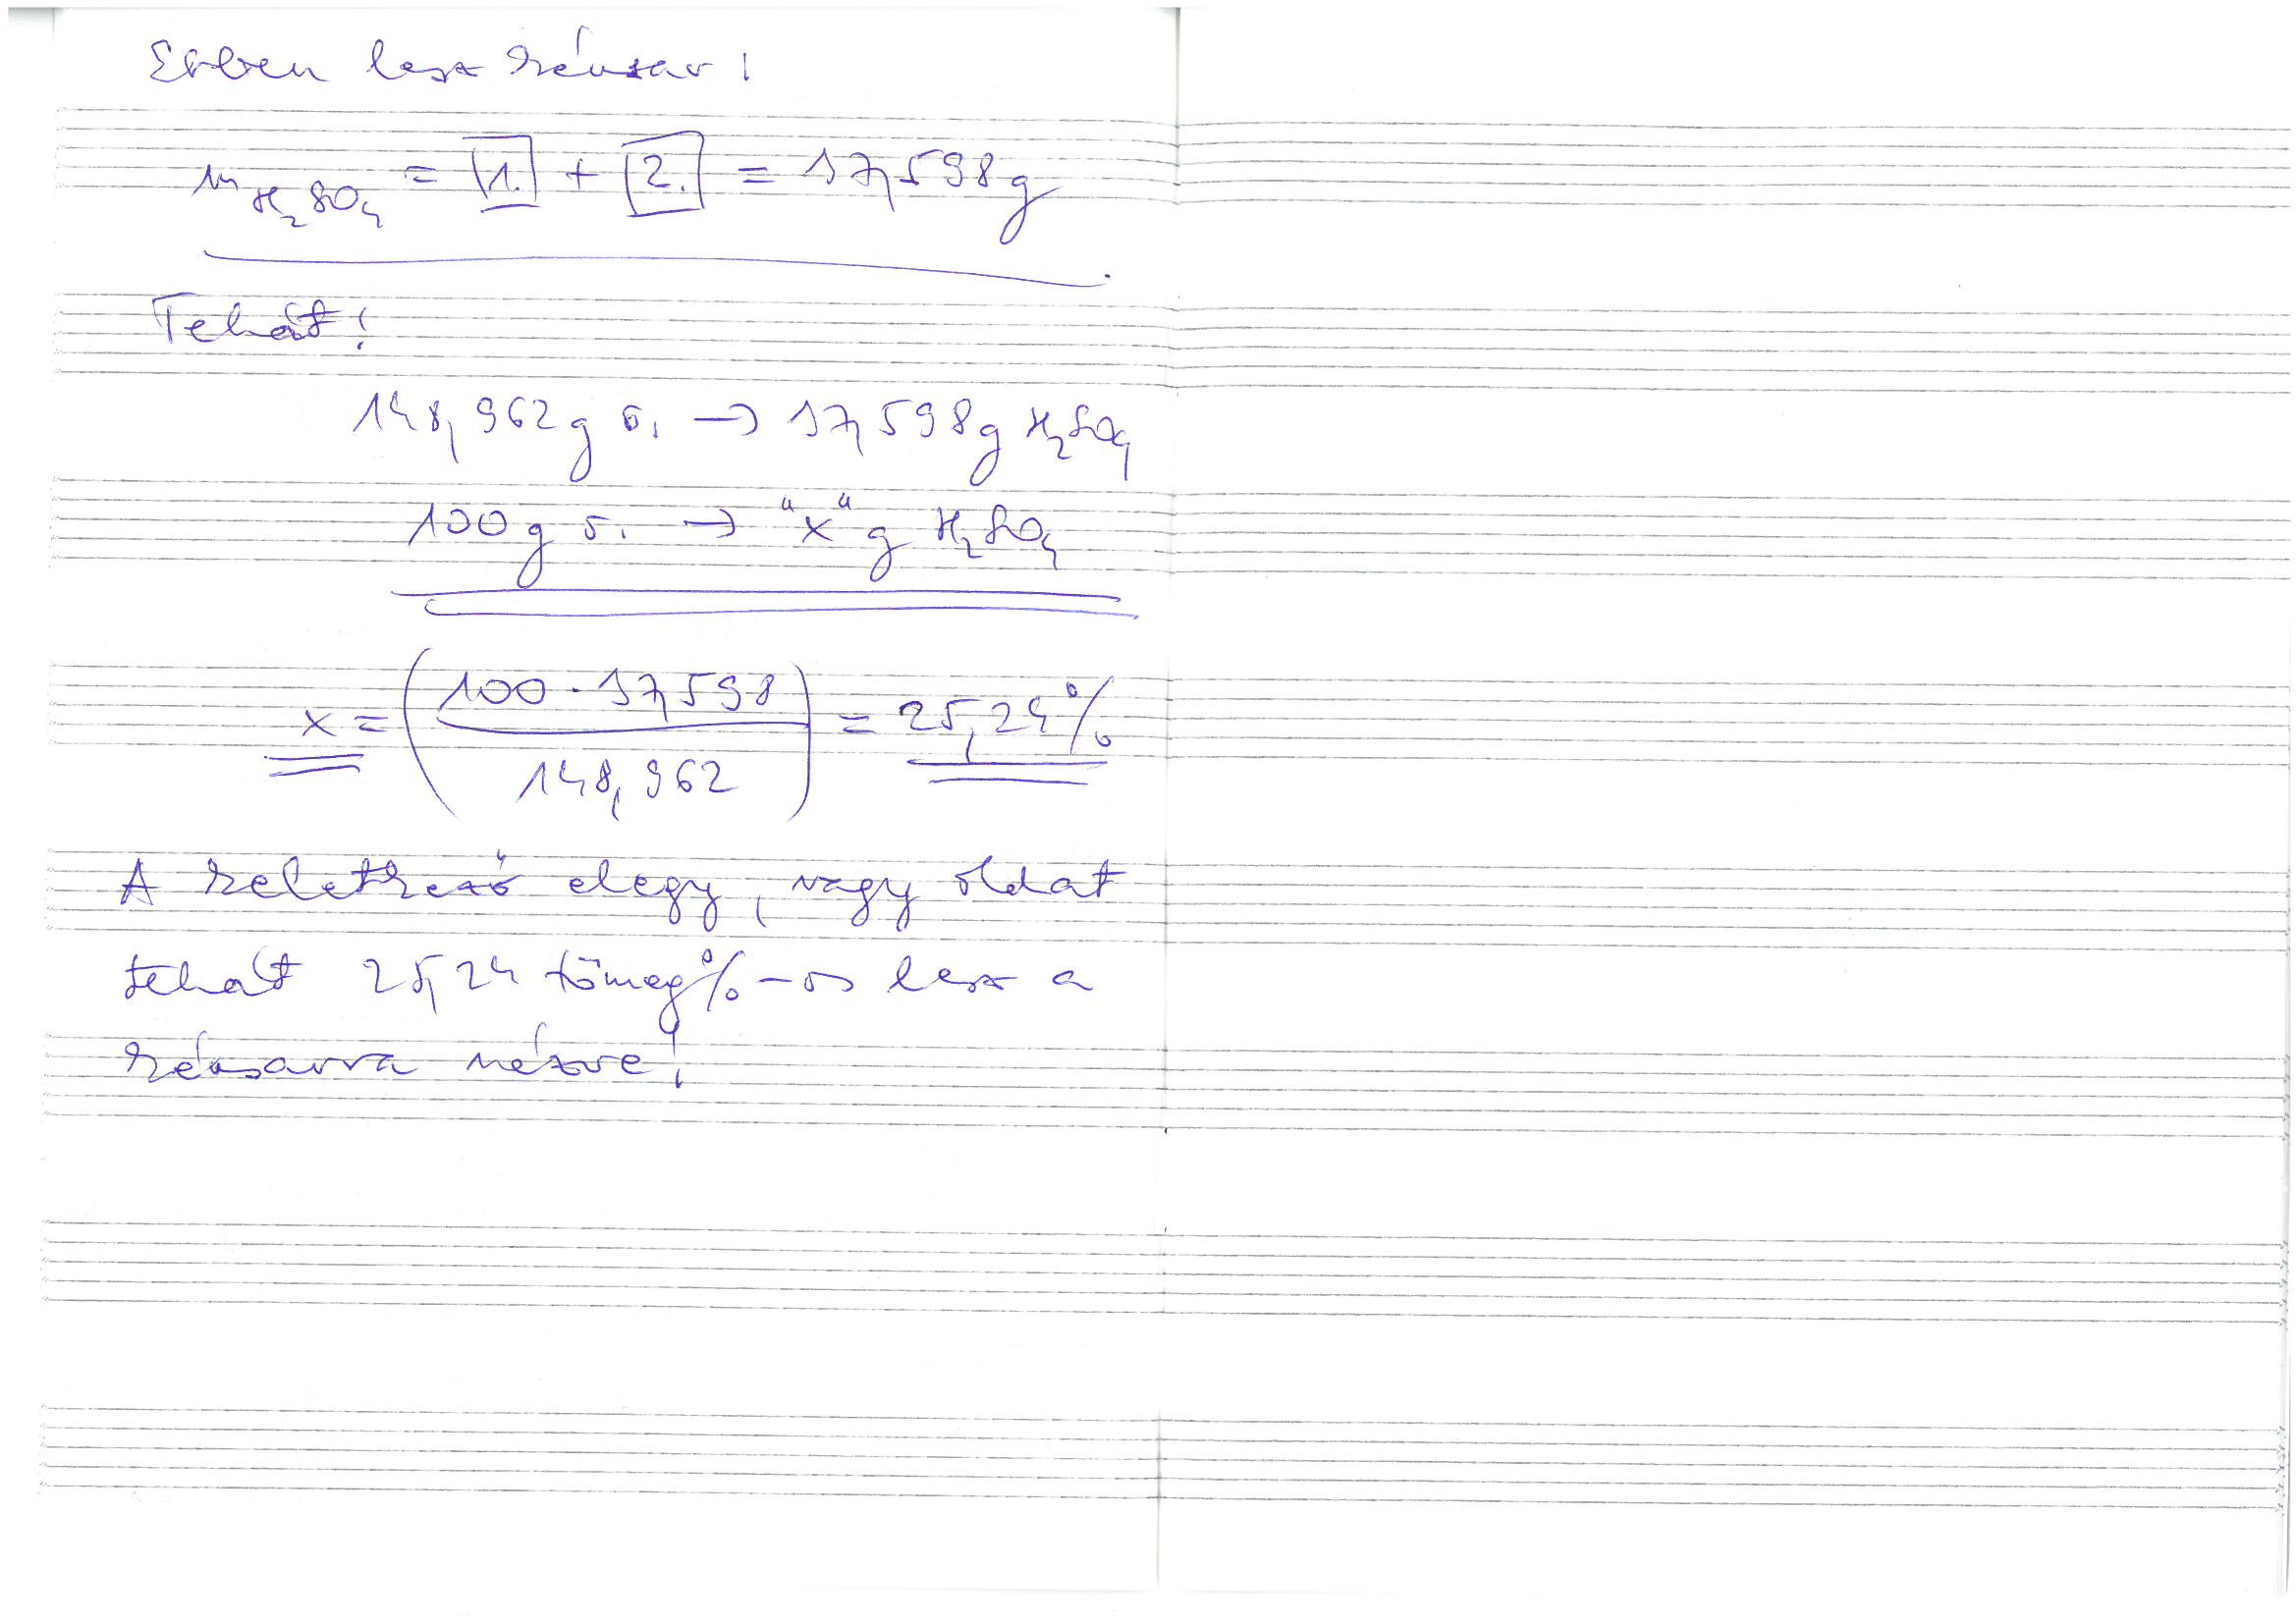 Ebben lesz kénsav:
m H₂SO₄ = [1.] + [2.] = 37,598 g
Tehát:
148,962 g o. → 37,598 g H₂SO₄
100 g o. → "x" g H₂SO₄
x = (100 · 37,598 / 148,962) = 25,24 %
A keletkező elegy, vagy oldat
tehát 25,24 tömeg%-os lesz a
kénsavra nézve!